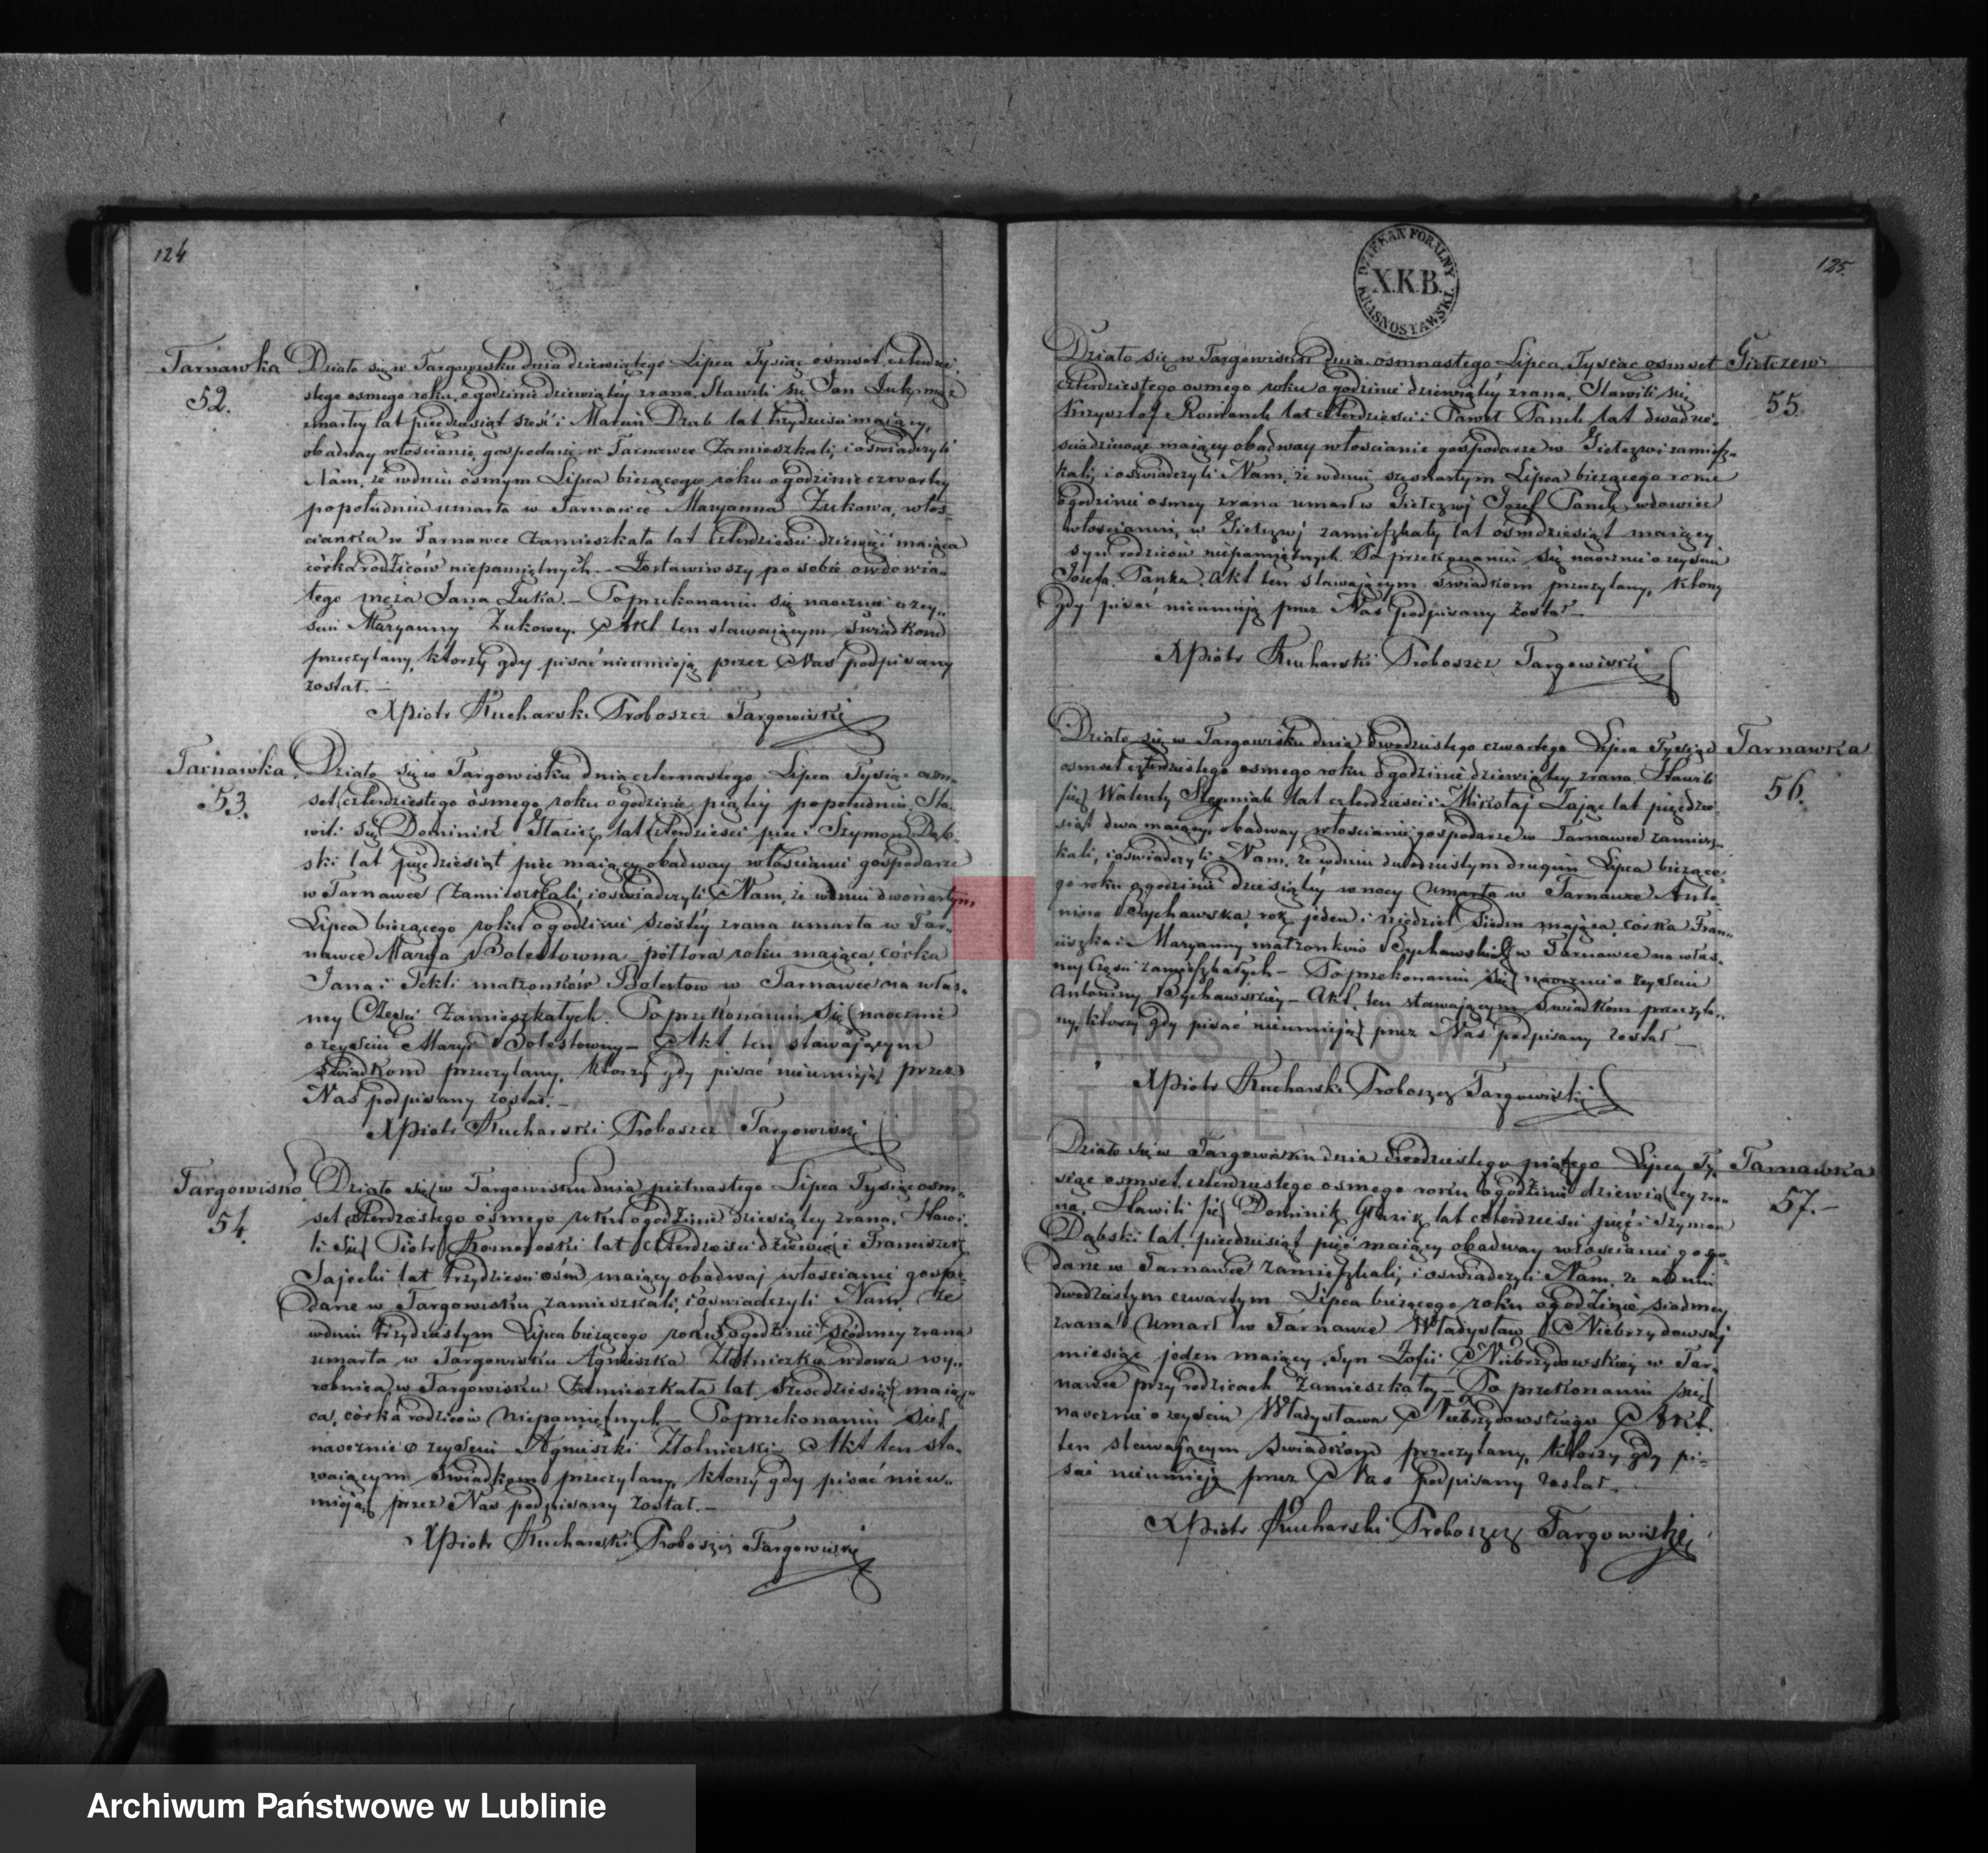 124
Tarnawka
52.
Działo się w Targowisku dnia dziewiątego Lipca Tysiąc ośmset czterdzie-
stego osmego roku, o godzinie dziewiątey zrana. Stawili się Jan Żuk mąż
zmarłey lat pięćdziesiąt sześć i Marcin Drab lat trzydzieści maiący,
obadway włościanie gospodarze w Tarnawce Zamieszkali, i oświadczyli
Nam, że wdniu ósmym Lipca bieżącego roku o godzinie czwartey
popołudniu umarła w Tarnawce Maryanna Żukowa, włoś-
cianka w Tarnawce Zamieszkała lat Czterdzieści dziewięć maiąca
córka rodziców niepamiętnych. - Zostawiwszy po sobie owdowia-
łego męża Jana Żuka. - Po przekonaniu się naocznie o zey-
ściu Maryanny Żukowey. Akt ten stawaiącym Świadkom
przeczytany, którzy gdy pisać nieumieią przez Nas podpisany
został. -
XPiotr Kucharski Proboszcz Targowiski
Tarnawka
53.
Działo się w Targowisku dnia czternastego Lipca Tysiąc ośm-
set czterdziestego ósmego roku o godzinie piątey popołudniu, Sta-
wili się Dominik Głazik lat Czterdzieści pięć i Szymon Dąb-
ski lat pięćdziesiąt pięć maiący obadway włościanie gospodarze
w Tarnawce Zamieszkali, i oświadczyli Nam, że wdniu dwónastym
Lipca bieżącego roku o godzinie szóstey zrana umarła w Tar-
nawce Marya Bolestowna półtora roku maiąca, córka
Jana i Tekli małżonków Bolestow w Tarnawce na włas-
ney Części Zamieszkałych. Po przekonaniu Się naocznie
o zeyściu Maryi Bolestowny - Akt ten stawaiącym
świadkom przeczytany, którzy gdy pisać nieumieią przez
Nas podpisany został. -
XPiotr Kucharski Proboszcz Targowiski
Targowisko
54.
Działo się w Targowisku dnia pietnastego Lipca Tysiąc ośm-
set czterdziestego ósmego roku o godzinie dziewiątey zrana, Stawi-
li Się Piotr Kosmowski lat Czterdzieści dziewięć i Franciszek
Sajecki lat trzydzieści ośm maiący obadwaj włościanie gospo-
darze w Targowisku zamieszkali, i oświadczyli Nam, że
wdniu trzydziestym Lipca bieżącego roku o godzinie siódmey zrana
umarła w Targowisku Agnieszka Złotniczka wdowa wy-
robnica w Targowisku Zamieszkała lat Sześćdziesiąt maią-
ca, córka rodziców Niepamiętnych - Po przekonaniu się
naocznie o zeyściu Agnieszki Złotniczki - Akt ten sta-
waiącym świadkom przeczytany, którzy gdy pisać nieu-
mieią przez Nas podpisany został. -
XPiotr Kucharski Proboszcz Targowiski
125.
DZIEKAN FORALNY
X.K.B.
KRASNOSTAWSKI.
Giełczew
55.
Działo się w Targowisku dnia osmnastego Lipca, Tysiąc osmset
czterdziestego osmego roku o godzinie dziewiątey zrana. Stawili się
Krzysztof Romanek lat czterdzieści i Paweł Panek lat dwadzie-
ścia dziewięć maiący obadway włościanie gospodarze w Giełczwi zamiesz-
kali, i oświadczyli Nam, że wdniu szesnastym Lipca bieżącego roku
o godzinie osmey zrana umarł w Giełczwi Jozef Panek wdowiec
włościanin, w Giełczwi zamieszkały lat ośmdziesiąt maiący
syn rodziców niepamiętnych. Po przekonaniu Się naocznie o zeyściu
Jozefa Panka. Akt ten stawaiącym świadkom przeczytany, którzy
gdy pisać nieumieią przez Nas podpisany został. -
XPiotr Kucharski Proboszcz Targowiski
Tarnawka
56.
Działo się w Targowisku dnia dwudziestego czwartego Lipca Tysiąc
osmset czterdziestego osmego roku o godzinie dziewiątey zrana. Stawili
się Walenty Stępniak lat czterdzieści i Mikołaj Zając lat pięćdzie-
siąt dwa maiący, obadway włościanie gospodarze w Tarnawce zamiesz-
kali, i oświadczyli Nam, że wdniu dwudziestym drugim Lipca bieżące-
go roku o godzinie dziesiątey w nocy Umarła w Tarnawce Anto-
nina Bychawska, rok jeden i niedziel siedm maiąca, córka Fran-
ciszka i Maryanny małżonków Bychawskich w Tarnawce na włas-
ney Części zamieszkałych - Po przekonaniu się naocznie o zeyściu
Antoniny Bychawskiey - Akt ten stawaiącym Świadkom przeczyta-
ny, którzy gdy pisać nieumieią przez Nas podpisany został -
XPiotr Kucharski Proboszcz Targowiski
Tarnawka
57. -
Działo się w Targowisku dnia dwudziestego piątego Lipca Ty-
siąc osmset czterdziestego osmego roku o godzinie dziewiątey zra-
na, Stawili się Dominik Głazik lat czterdzieści pięć i Szymon
Dąbski lat pięćdziesiąt pięć maiący obadway włościanie gospo-
darze w Tarnawce zamieszkali, i oświadczyli Nam, że wdniu
dwudziestym czwartym Lipca bieżącego roku o godzinie siodmey
zrana Umarł w Tarnawce Władysław Niebrzydowski
miesiąc jeden maiący, Syn Zofii Niebrzydowskiey w Tar-
nawce przy rodzicach zamieszkały - Po przekonaniu się
naocznie o zeyściu Władysława Niebrzydowskiego Akt
ten stawaiącym Świadkom przeczytany, którzy gdy pi-
sać nieumieią przez Nas podpisany został.
XPiotr Kucharski Proboszcz Targowiski
ARCHIWUM PAŃSTWOWE
W LUBLINIE
Archiwum Państwowe w Lublinie